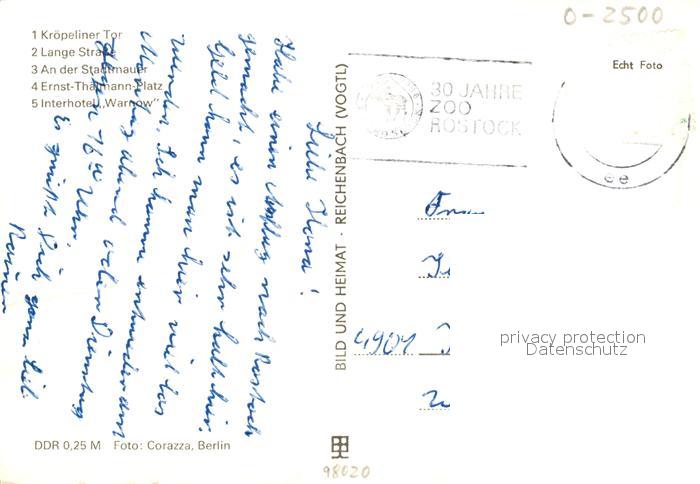 1 Kröpeliner Tor
2 Lange Straße
3 An der Stadtmauer
4 Ernst-Thälmann-Platz
5 Interhotel „Warnow"
Liebe Ilona!
Habe einen Ausflug nach Rostock
gemacht, es ist sehr kalt hier.
Geld kann man hier viel los
werden. Ich komme entweder am
Montag Abend oder Dienstag
gegen 16 00 Uhr.
Es grüßt Dich ganz lieb
DDR 0,25 M Foto: Corazza, Berlin
BILD UND HEIMAT · REICHENBACH (VOGTL)
98020
0-2500
Echt Foto
30 JAHRE
ZOO
ROSTOCK
ee
4901
privacy protection
Datenschutz